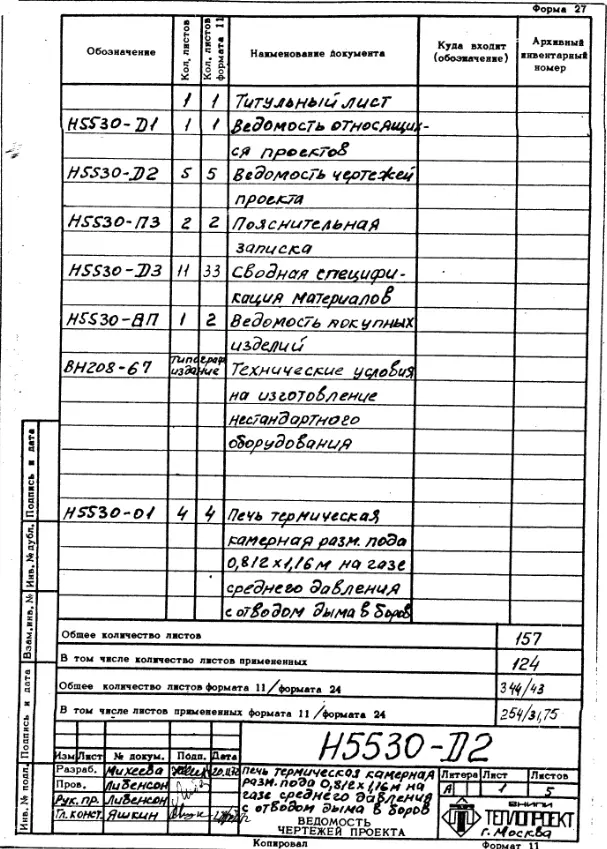 Форма 27
Обозначение Кол. листов Кол. листов формата 11 Наименование Документа Куда входит (обозначение) Архивный инвентарный номер
1 1 Титульный лист
Н5530-D1 1 1 Ведомость относящих-
ся проектов
Н5530-D2 5 5 Ведомость чертежей
проекта
Н5530-ПЗ 2 2 Пояснительная
записка
Н5530-D3 11 33 Сводная специфи-
кация материалов
Н5530-ВП 1 2 Ведомость покупных
изделий
ВН208-67 типограф издание Технические условия
на изготовление
нестандартного
оборудования
Н5530-01 4 4 Печь термическая
камерная разм. пода
0,812х1,16м на газе
среднего давления
с отводом дыма в боров
Общее количество листов 157
В том числе количество листов примененных 124
Общее количество листов формата 11/формата 24 344/43
В том числе листов примененных формата 11/формата 24 254/31,75
Инв. № подл. Подпись и дата Взам.инв. № Инв. № дубл. Подпись и дата
Н5530-D2
Изм Лист № докум. Подп. Дата
Разраб. Михеева
Пров. Либенсон
Рук. пр. Либенсон
Гл. конст. Яшкин
Печь термическая камерная
разм. пода 0,812х1,16м на
газе среднего давления
с отводом дыма в боров
ВЕДОМОСТЬ
ЧЕРТЕЖЕЙ ПРОЕКТА
Литера Лист Листов
А 1 5
ВНИПИ
ТЕПЛОПРОЕКТ
г. Москва
Копировал Формат 11